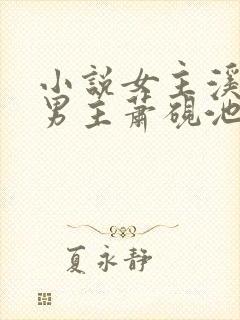 小說女主溪
男主蕭硯池
夏永靜